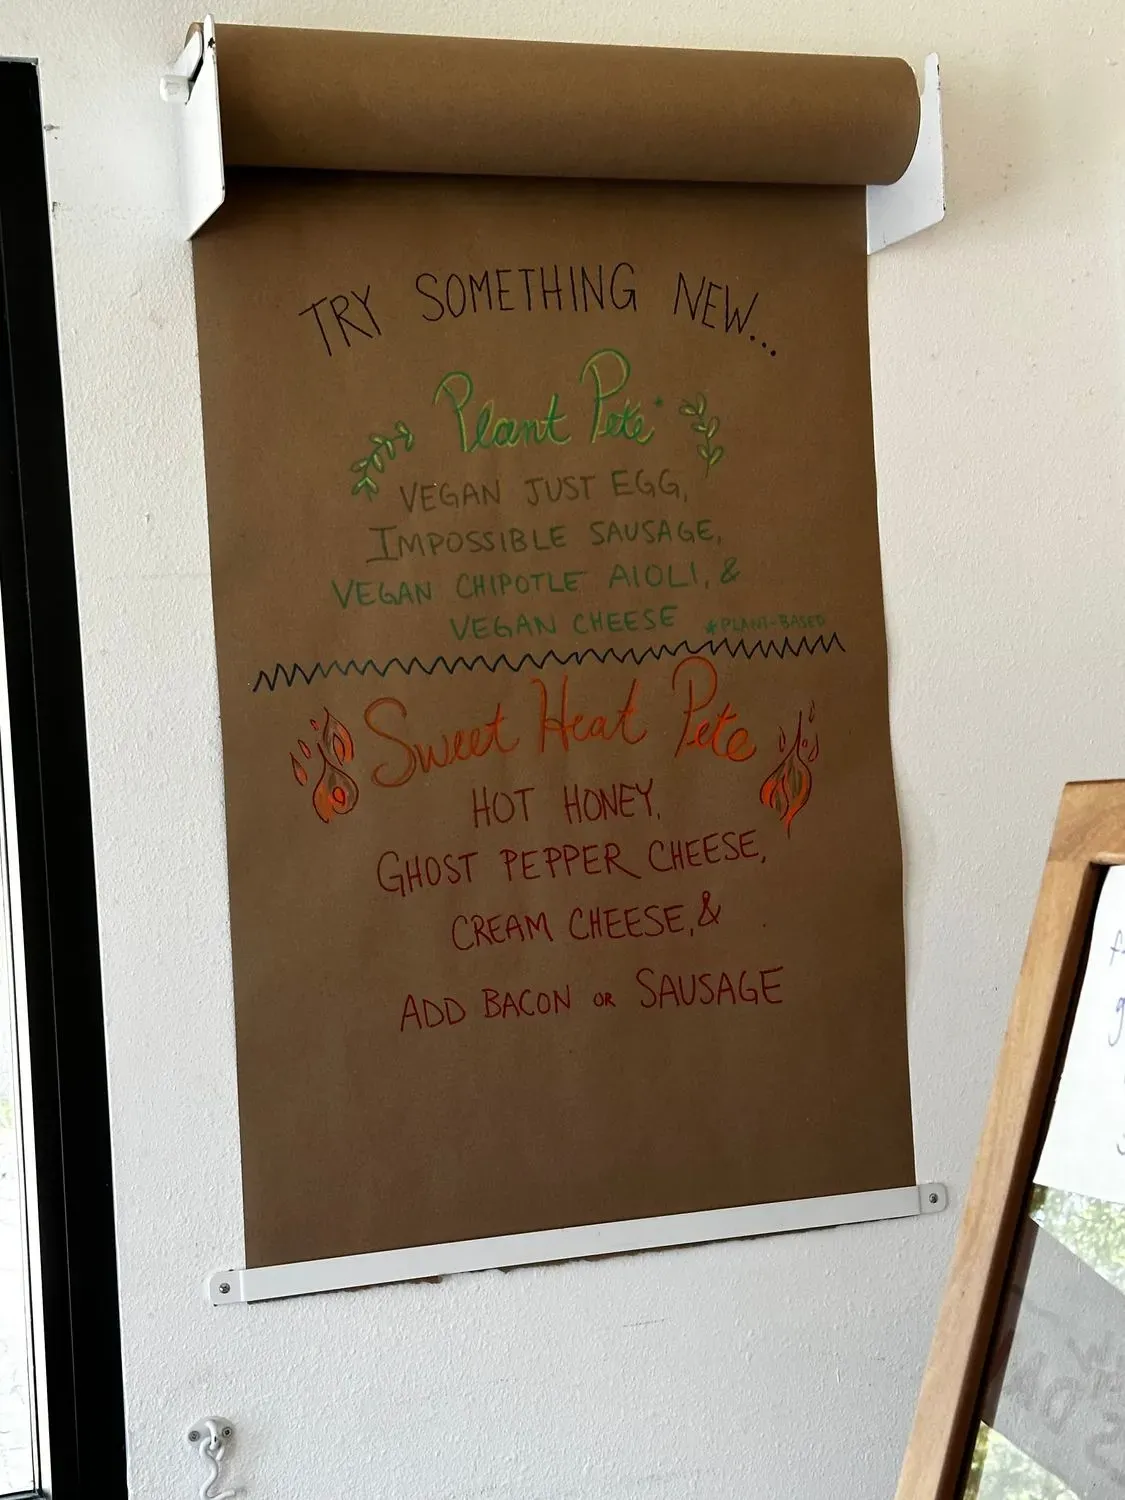 TRY SOMETHING NEW...
Plant Pete*
VEGAN JUST EGG,
IMPOSSIBLE SAUSAGE,
VEGAN CHIPOTLE AIOLI, &
VEGAN CHEESE *PLANT-BASED
Sweet Heat Pete
HOT HONEY,
GHOST PEPPER CHEESE,
CREAM CHEESE, &
ADD BACON OR SAUSAGE